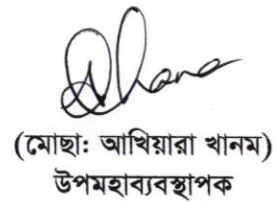 (মোছা: আখিয়ারা খানম)
উপমহাব্যবস্থাপক